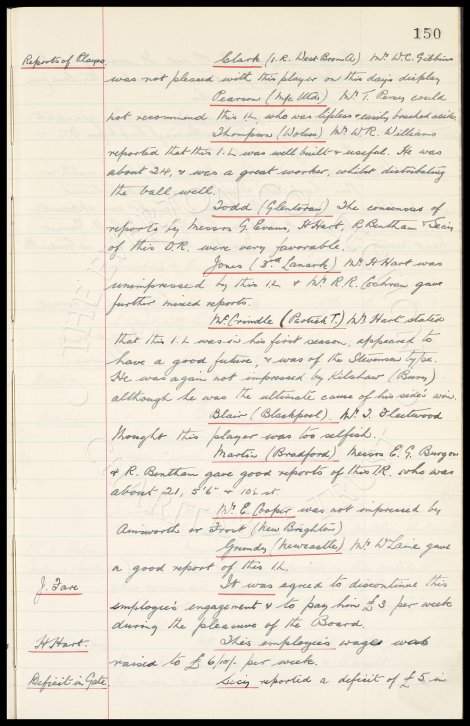 150
Reports of Players. Clark (I.R. West Brom A) Mr W.C. Gibbins
was not pleased with this player on this days display
Pearson (N/c Utd) Mr T. Percy could
not recommend this I.L. who was lifeless & easily brushed aside.
Thompson (Wolves) Mr W.R. Williams
reported that this I.L was well built & useful. He was
about 24, & was a great worker, whilst distributing
the ball well.
Todd (Glentoran) The consensus of
reports by Messrs G. Evans, H Hart, R. Bentham & Secy
of this O.R. were very favorable.
Jones (3rd Lanark) Mr H Hart was
unimpressed by this I.L & Mr R.R. Cochran gave
further mixed reports.
McCrindle (Partick T.) Mr Hart stated
that this I.L was in his first season, appeared to
have a good future, & was of the Stevenson type.
He was again not impressed by Kilshaw (Bury)
although he was the ultimate cause of his side's win.
Blair (Blackpool). Mr J. Fleetwood
thought this player was too selfish.
Martin (Bradford) Messrs E.G. Burgon
& R. Bentham gave good reports of this I.R. who was
about 21, 5'6" & 10½ st.
Mr E. Cooper was not impressed by
Ainsworth or Frost (New Brighton)
(Newcastle) Mr W Laine gave
a good report of this I.L.
J. Fare It was agreed to discontinue this
employee's engagement & to pay him £3 per week
during the pleasure of the Board.
H Hart. This employee's wage was
raised to £6/10/- per week.
Deficit in Gate Secy reported a deficit of £5 in